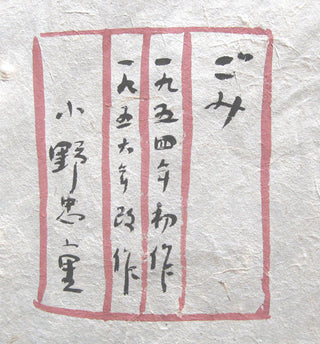 ごみ
一九五四年初作
一九五六年改作
小野忠重